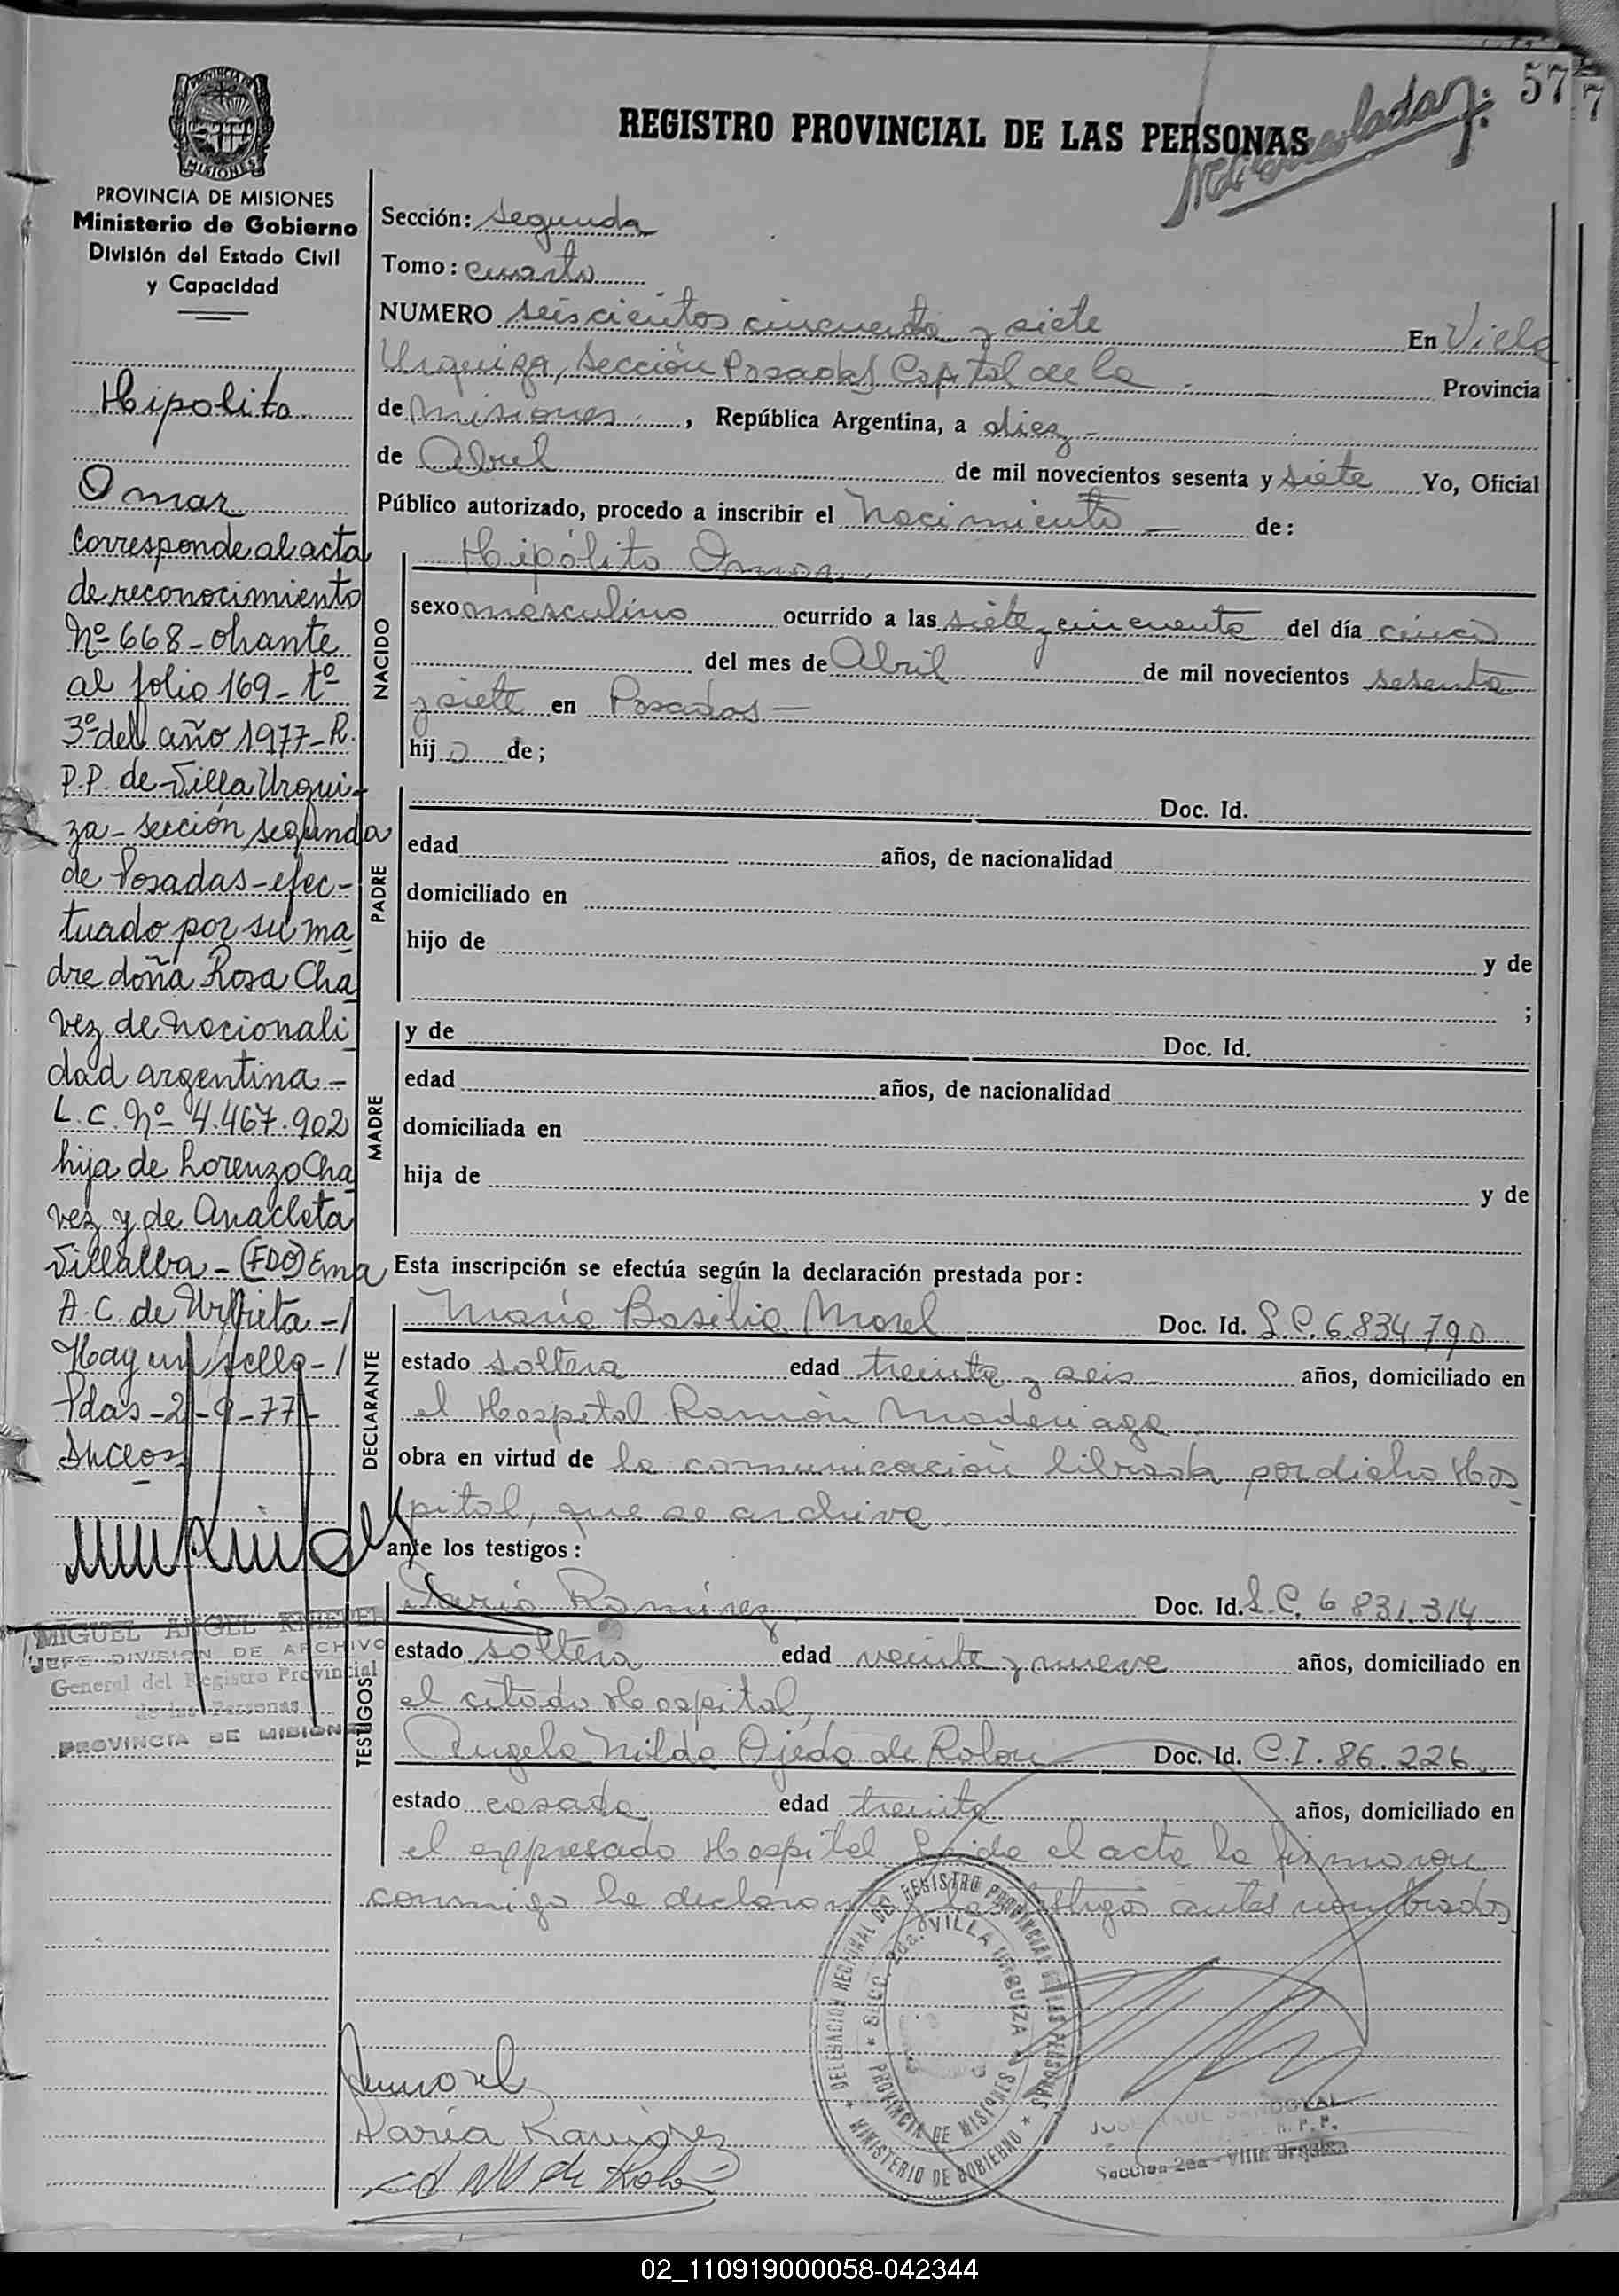 57
7
REGISTRO PROVINCIAL DE LAS PERSONAS
PROVINCIA DE
MISIONES
PROVINCIA DE MISIONES
Ministerio de Gobierno
División del Estado Civil
y Capacidad
Hipolito
Omar
Corresponde al acta
de reconocimiento
Nº 668 - obrante
al folio 169 - tº
3º del año 1977 - R.
P.P. de Villa Urqui-
za - sección segunda
de Posadas - efec-
tuado por su ma
dre doña Rosa Cha
vez de nacionali
dad argentina -
L.C. Nº 4.467.902
hija de Lorenzo Cha
vez y de Anacleta
Villalba - (FDO) Ema
A.C. de Urrieta - /
Hay un sello - /
Pdas - 21-9-77 -
MIGUEL ANGEL
JEFE DIVISION DE ARCHIVO
General del Registro Provincial
de las Personas
PROVINCIA DE MISIONES
Sección: segunda
Tomo: cuarto
NUMERO seiscientos cincuenta y siete En Villa
Urquiza, Sección Posadas Capital de la Provincia
de Misiones, República Argentina, a diez -
de Abril de mil novecientos sesenta y siete Yo, Oficial
Público autorizado, procedo a inscribir el Nacimiento - de:
NACIDO
Hipólito Omar
sexo masculino ocurrido a las siete y cincuenta del día cinco
del mes de Abril de mil novecientos sesenta
y siete en Posadas -
hijo de;
PADRE
Doc. Id.
edad años, de nacionalidad
domiciliado en
hijo de y de
;
MADRE
y de Doc. Id.
edad años, de nacionalidad
domiciliada en
hija de y de
Esta inscripción se efectúa según la declaración prestada por:
DECLARANTE
María Basilia Morel Doc. Id. L.C. 6.834.790
estado soltera edad treinta y seis años, domiciliado en
el Hospital Ramón Madariaga
obra en virtud de la comunicación librada por dicho Hos
pital, que se archiva.
ante los testigos:
TESTIGOS
María Ramirez Doc. Id. L.C. 6.831.314
estado soltera edad veinte y nueve años, domiciliado en
el citado Hospital,
Angela Nilda Ojeda de Rolon Doc. Id. C.I. 86.226
estado casada edad treinta años, domiciliado en
el expresado Hospital Leida el acta la firmaron
conmigo la declarante y los testigos antes nombrados
DELEGACION REGIONAL DEL REGISTRO PROVINCIAL DE LAS PERSONAS
* MINISTERIO DE GOBIERNO *
* SECC. 2da. VILLA URQUIZA *
PROVINCIA DE MISIONES
Morel
María Ramirez
de Rolon
SANDOVAL
R.P.P.
Sección 2da - Villa Urquiza
02_110919000058-042344